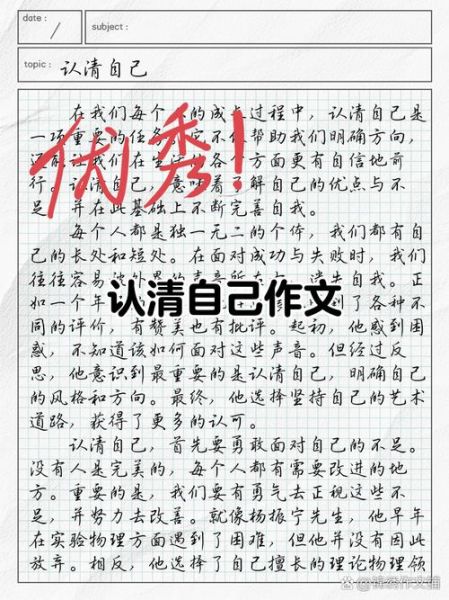 date :
subject :
topic : 认清自己
在我们每个 的成长过程中，认清自己是
一项重要的任务 它不 帮助我们明确方向，
还能让我们在生活的各个方面更有自信地前
行。认清自己，意味着了解自己的优点与不
足 并在此基础上不断完善自我。
优秀!
每个人都是独一无二的个体，我们都有自
己的长处和短处。在面对成功与失败时，我们
往往容易 自我。正
如一个年 到了各种不
认清自己作文
同的评价，有赞美也有批评。起初，他感到困
惑，不知道该如何面对这些声音。但经过反
思，他意识到最重要的是认清自己，明确自己
的风格和方向。最终，他选择坚持自己的艺术
道路，获得了更多的认可。
认清自己，首先要勇敢面对自己的不足。
没有人是完美的，每个人都有需要改进的地
方。重要的是，我们要有勇气去正视这些不
足，并努力去改善。就像杨振宁先生，他早年
在实验物理方面遇到了困难，但他并没有因此
放弃。相反，他选择了自己擅长的理论物理领